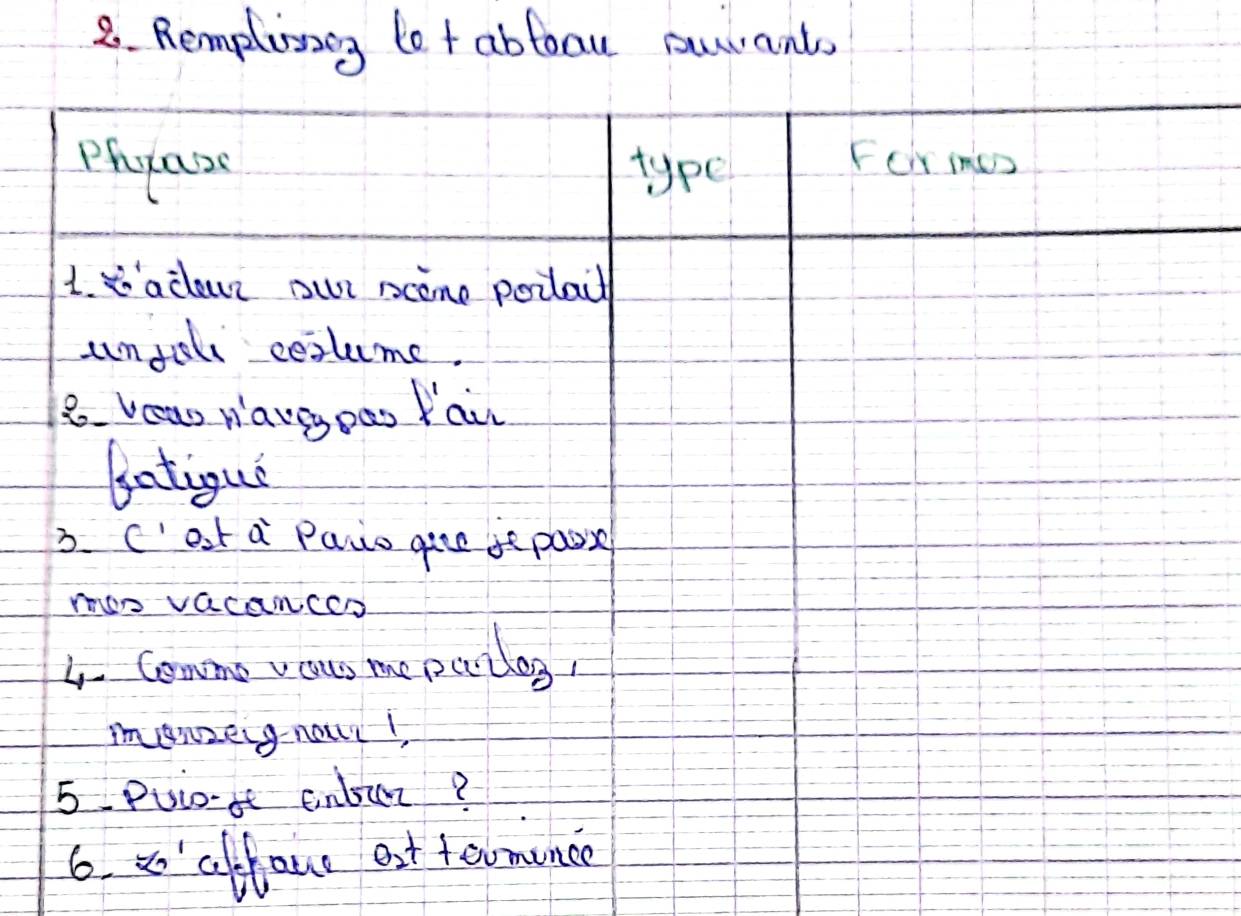 2. Remplissez le tableau suivants
Phrase type Formes
1. L'acteur sur scène portait
un joli costume.
2- Vous n'avez pas l'air
fatigué
3- C'est à Paris que je passe
mes vacances
4- Comme vous me parlez,
monseigneur !
5- Puis-je entrer ?
6- L'affaire est terminée